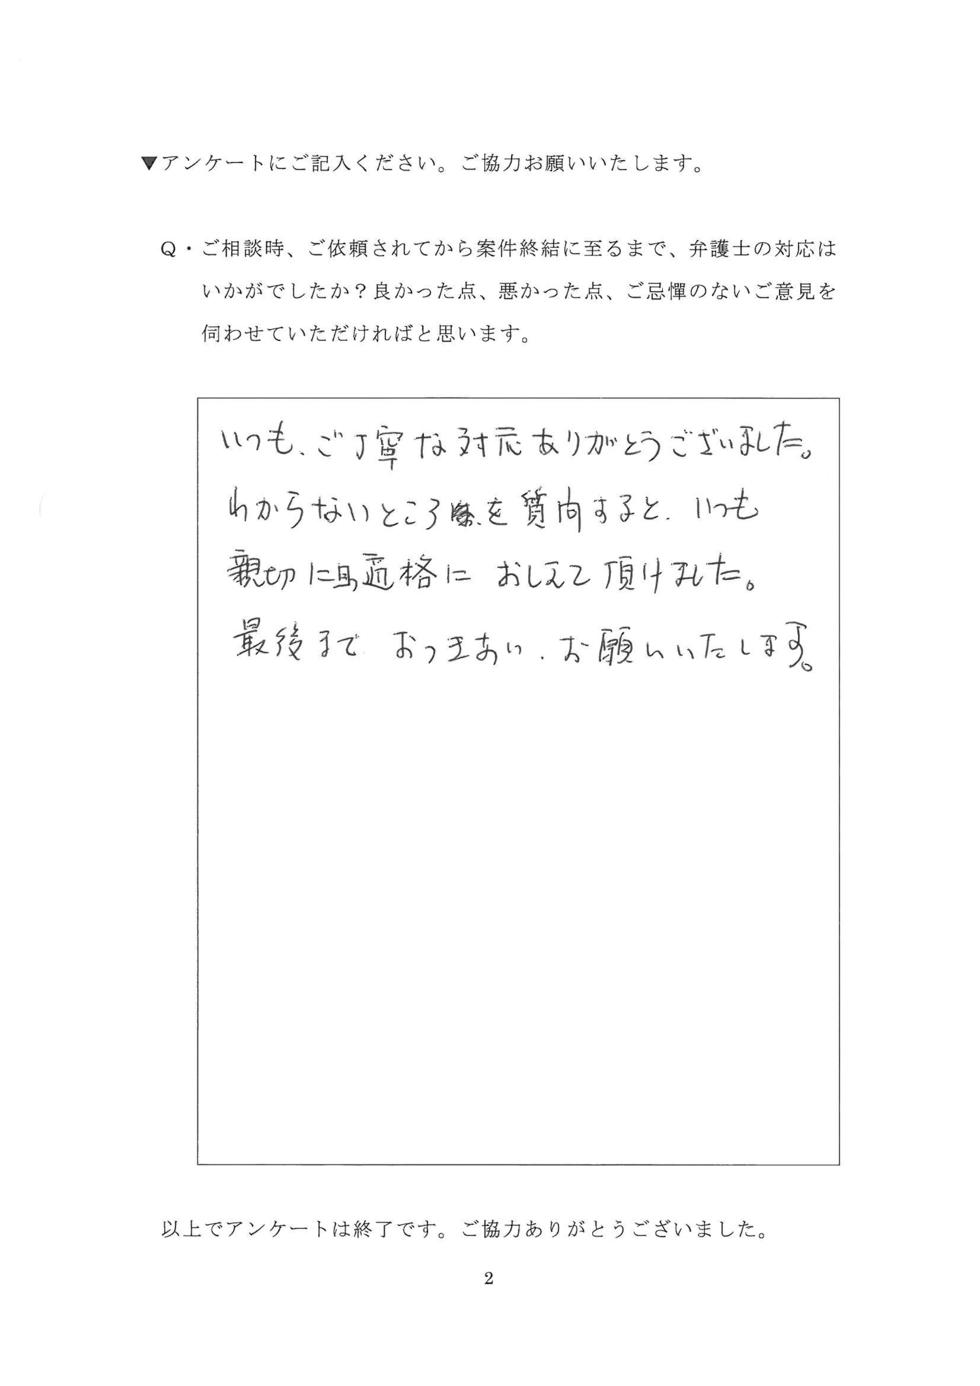 ▼アンケートにご記入ください。ご協力お願いいたします。
Q・ご相談時、ご依頼されてから案件終結に至るまで、弁護士の対応は
いかがでしたか？良かった点、悪かった点、ご忌憚のないご意見を
伺わせていただければと思います。
いつも、ご丁寧な対応ありがとうございました。
わからないところを質問すると、いつも
親切に適格におしえて頂けました。
最後までおつきあい、お願いいたします。
以上でアンケートは終了です。ご協力ありがとうございました。
2